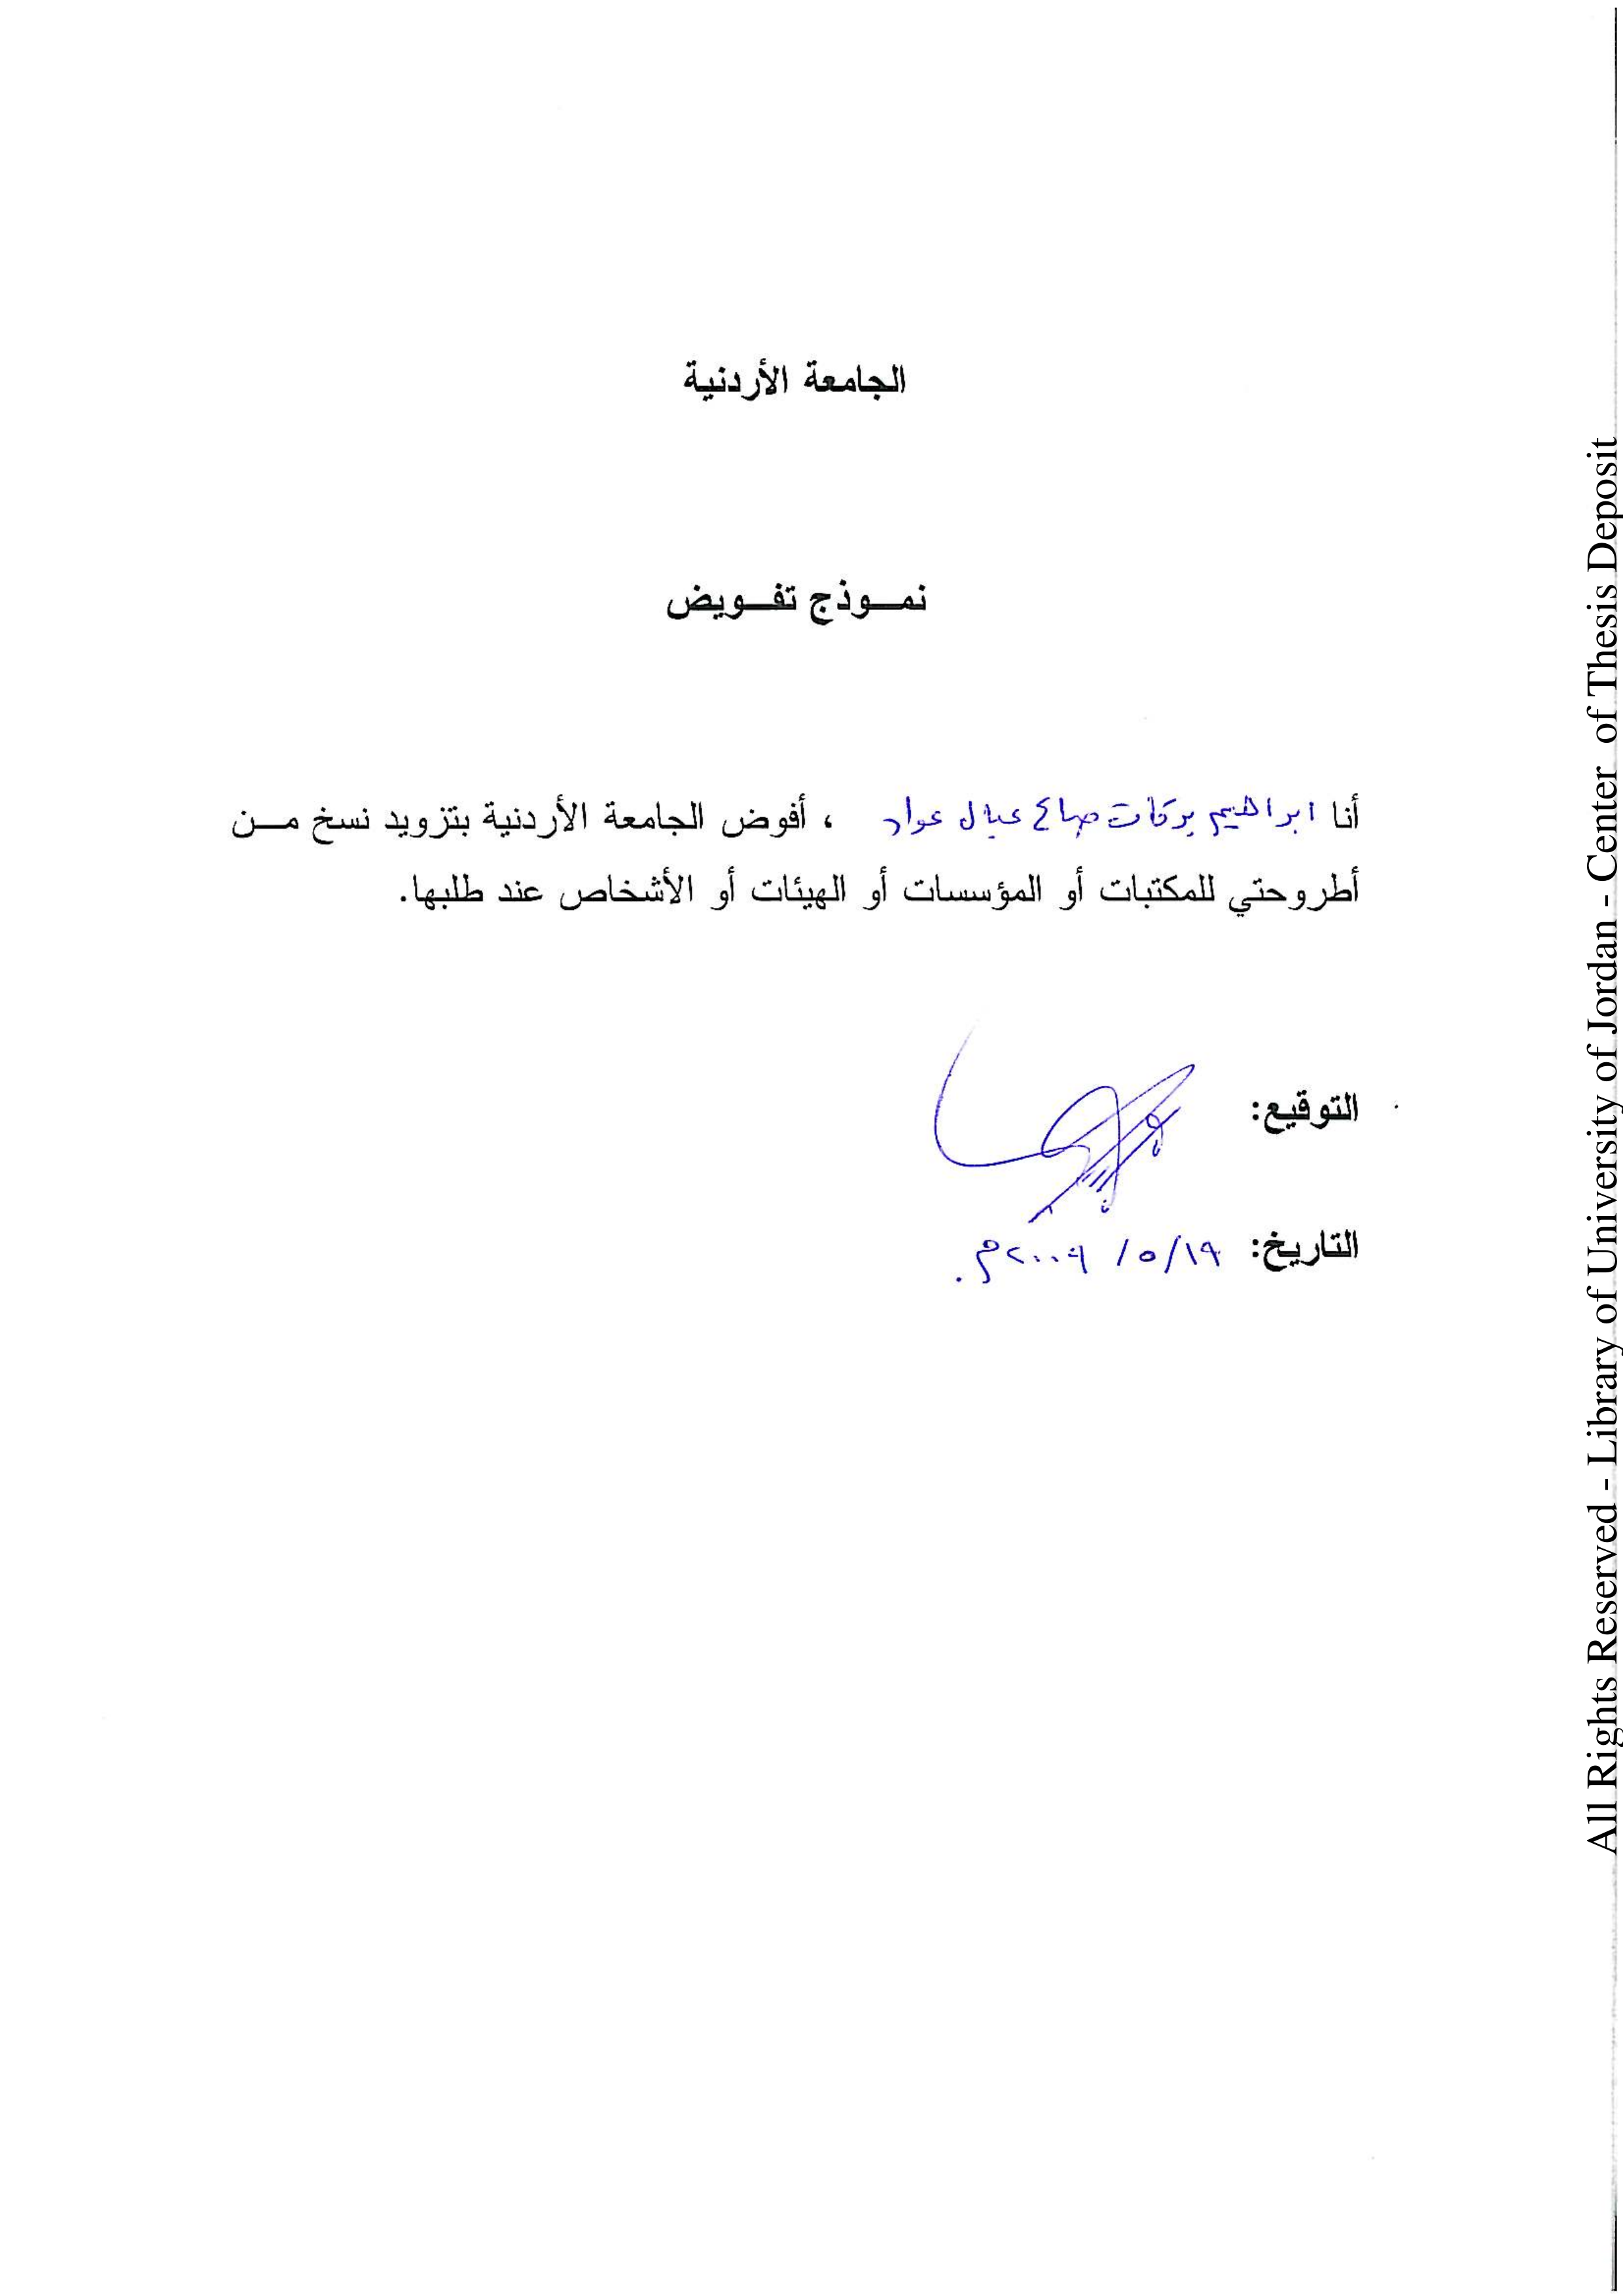 الجامعة الأردنية
نمـــوذج تفـــويض
أنا ابراهيم بركات صالح عيال عواد ، أفوض الجامعة الأردنية بتزويد نسخ مـــن
أطروحتي للمكتبات أو المؤسسات أو الهيئات أو الأشخاص عند طلبها.
التوقيع:
التاريخ: ١٩/ ٥/ ٢٠٠٩م.
All Rights Reserved - Library of University of Jordan - Center of Thesis Deposit